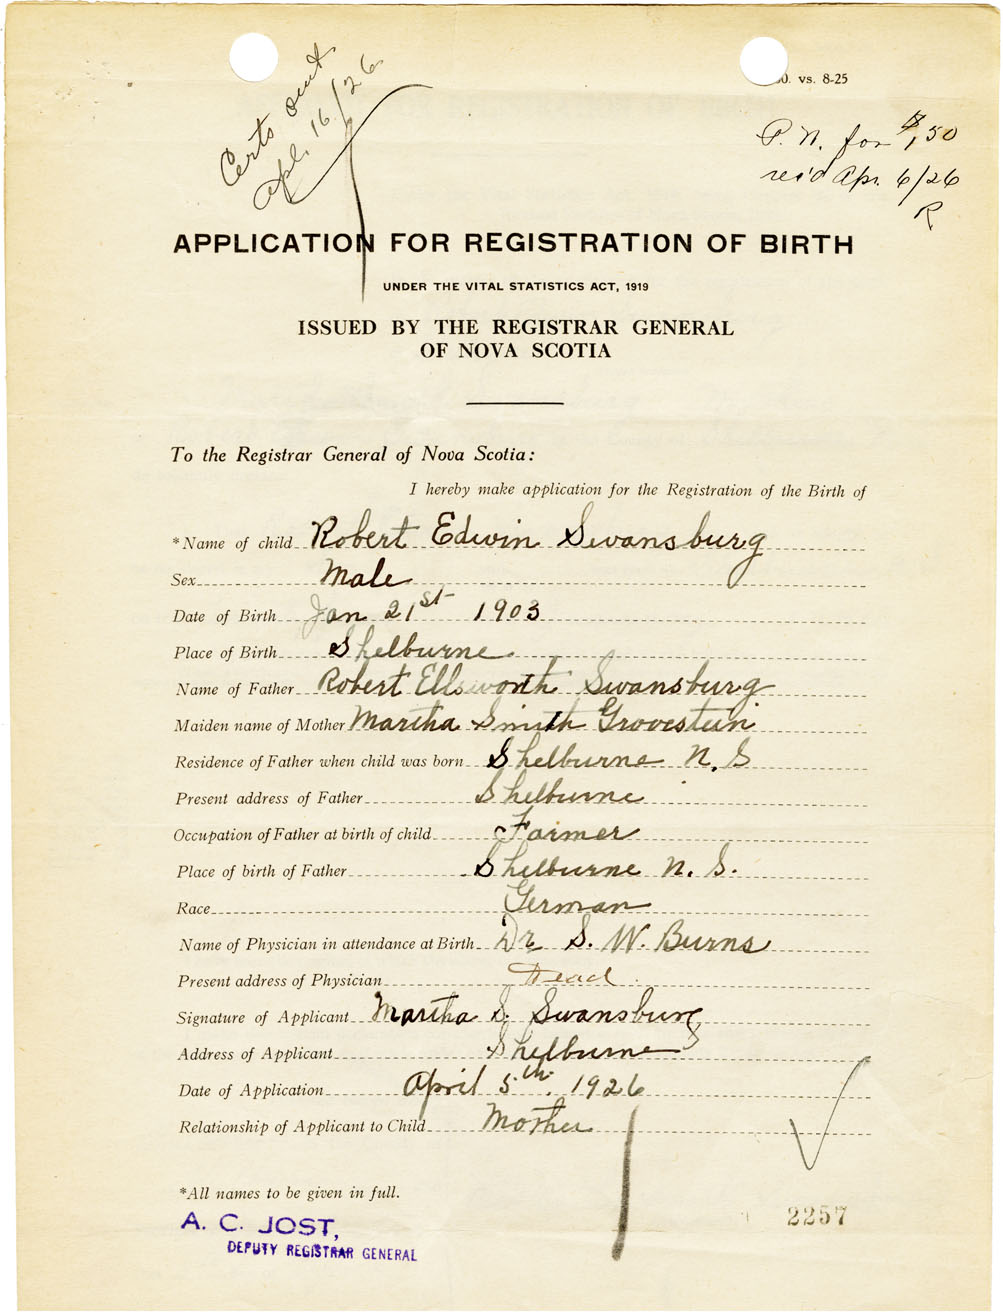 Certs out
Apl. 16/26
0. vs. 8-25
P. N. for $1,50
rec'd Apr. 6/26
R
APPLICATION FOR REGISTRATION OF BIRTH
UNDER THE VITAL STATISTICS ACT, 1919
ISSUED BY THE REGISTRAR GENERAL
OF NOVA SCOTIA
To the Registrar General of Nova Scotia:
I hereby make application for the Registration of the Birth of
*Name of child Robert Edwin Swansburg
Sex Male
Date of Birth Jan 21st 1903
Place of Birth Shelburne
Name of Father Robert Ellsworth Swansburg
Maiden name of Mother Martha Smith Grovestein
Residence of Father when child was born Shelburne N. S
Present address of Father Shelburne
Occupation of Father at birth of child Farmer
Place of birth of Father Shelburne N. S.
Race German
Name of Physician in attendance at Birth Dr S. W. Burns
Present address of Physician Dead
Signature of Applicant Martha S. Swansburg
Address of Applicant Shelburne
Date of Application April 5th. 1926
Relationship of Applicant to Child Mother
*All names to be given in full.
A. C. JOST,
DEPUTY REGISTRAR GENERAL
2257